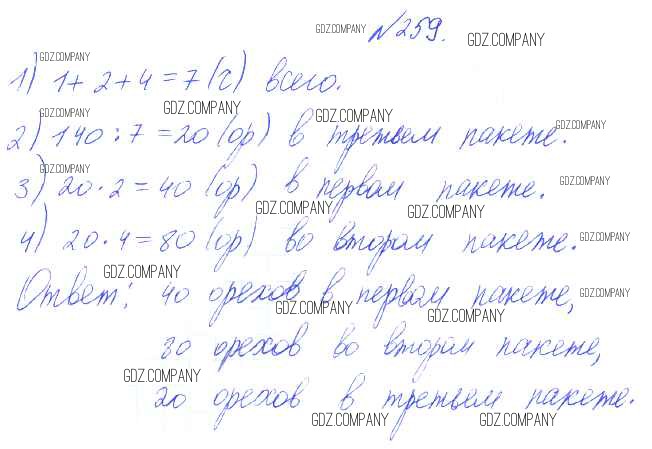 GDZ.COMPANY №259. GDZ.COMPANY
GDZ.COMPANY
1) 1+2+4=7(ч) всего.
GDZ.COMPANY GDZ.COMPANY GDZ.COMPANY
2) 140:7=20 (ор) в третьем пакете. GDZ.COMPANY
GDZ.COMPANY
3) 20·2=40 (ор) в первом пакете. GDZ.COMPANY
GDZ.COMPANY GDZ.COMPANY
4) 20·4=80 (ор) во втором пакете. GDZ.COMPANY
GDZ.COMPANY
Ответ: 40 орехов в первом пакете, GDZ.COMPANY
GDZ.COMPANY GDZ.COMPANY
80 орехов во втором пакете,
GDZ.COMPANY
20 орехов в третьем пакете.
GDZ.COMPANY GDZ.COMPANY